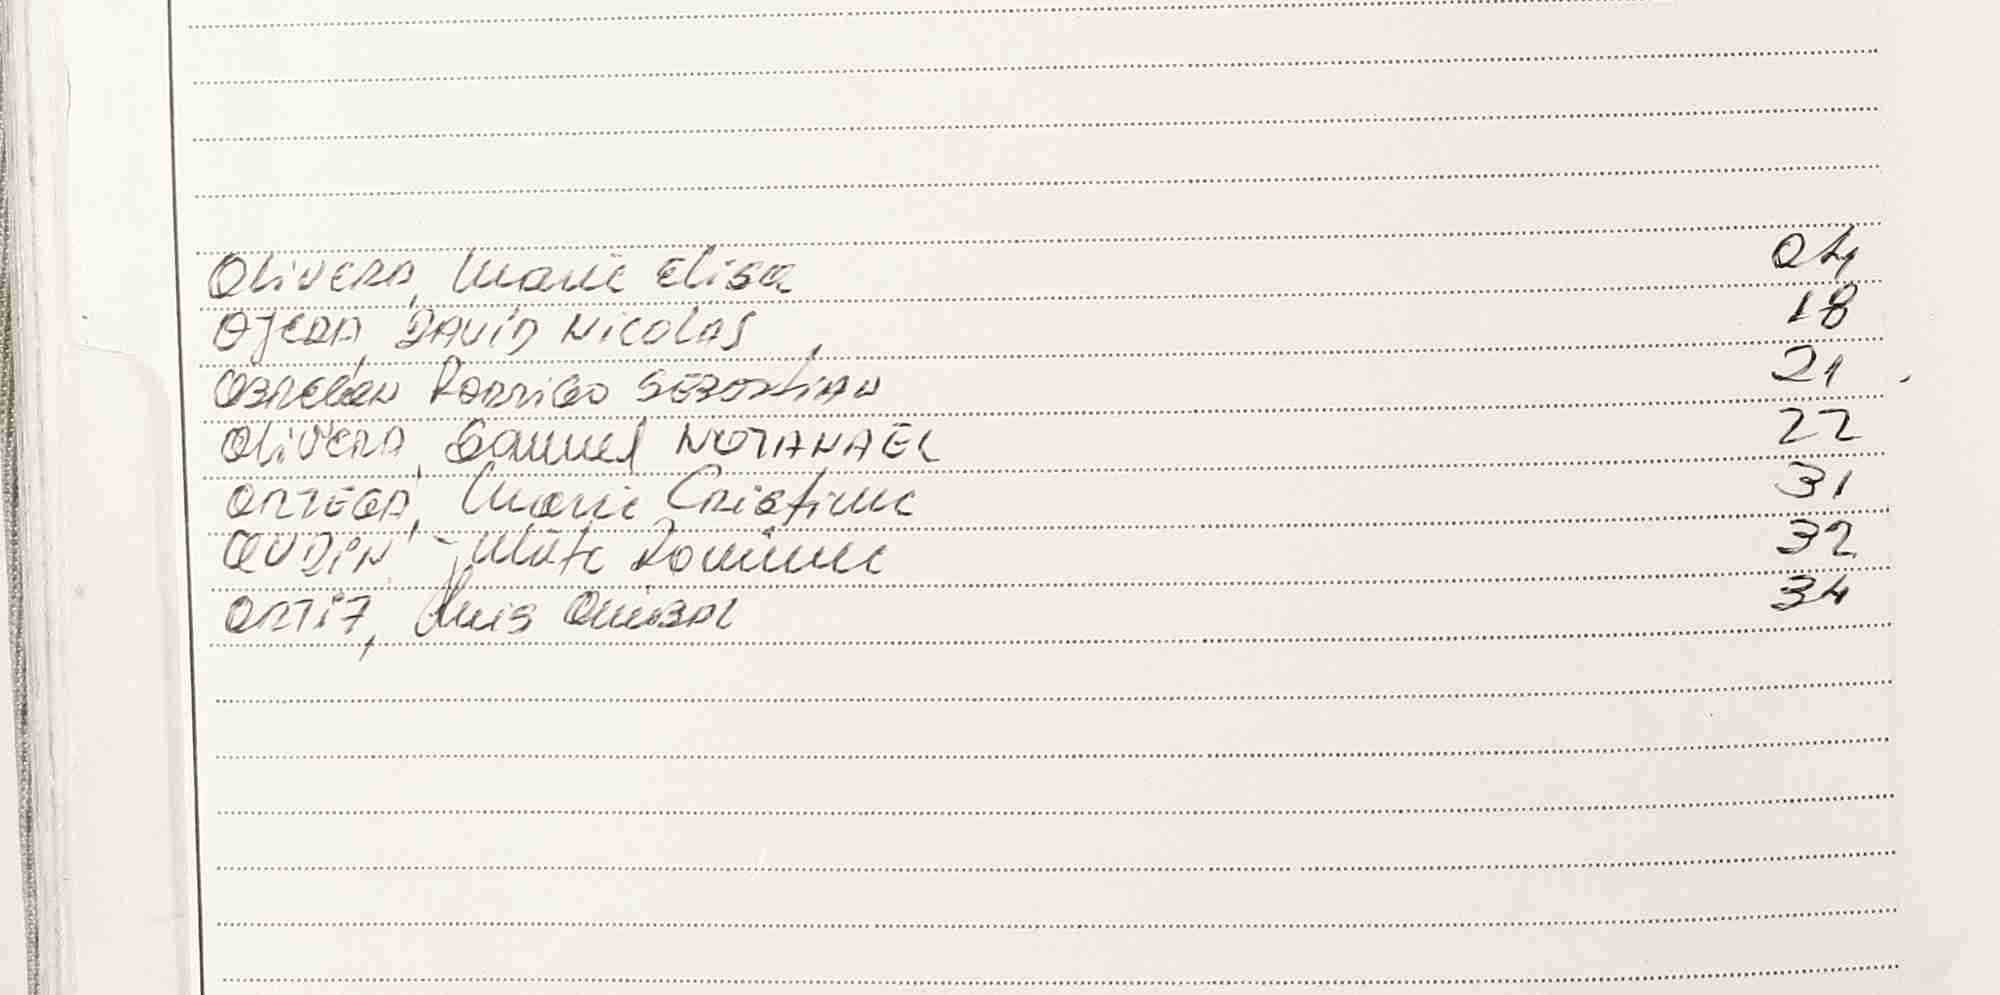 Olivera, Maria Elisa 04
Ojeda, David Nicolas 18
Obregon Rodrigo Sebastian 21
Olivera, Samuel Natanael 22
Ortega, Maria Cristina 32
Romina 32
Ortiz, Luis Anibal 34